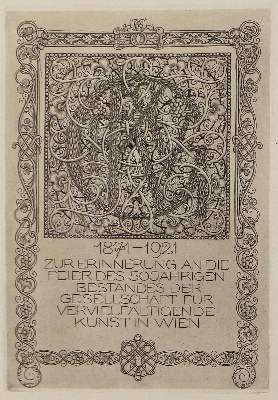 1871-1921
ZUR ERINNERUNG AN DIE
FEIER DES 50JÄHRIGEN
BESTANDES DER
GESELLSCHAFT FÜR
VERVIELFÄLTIGENDE
KUNST IN WIEN